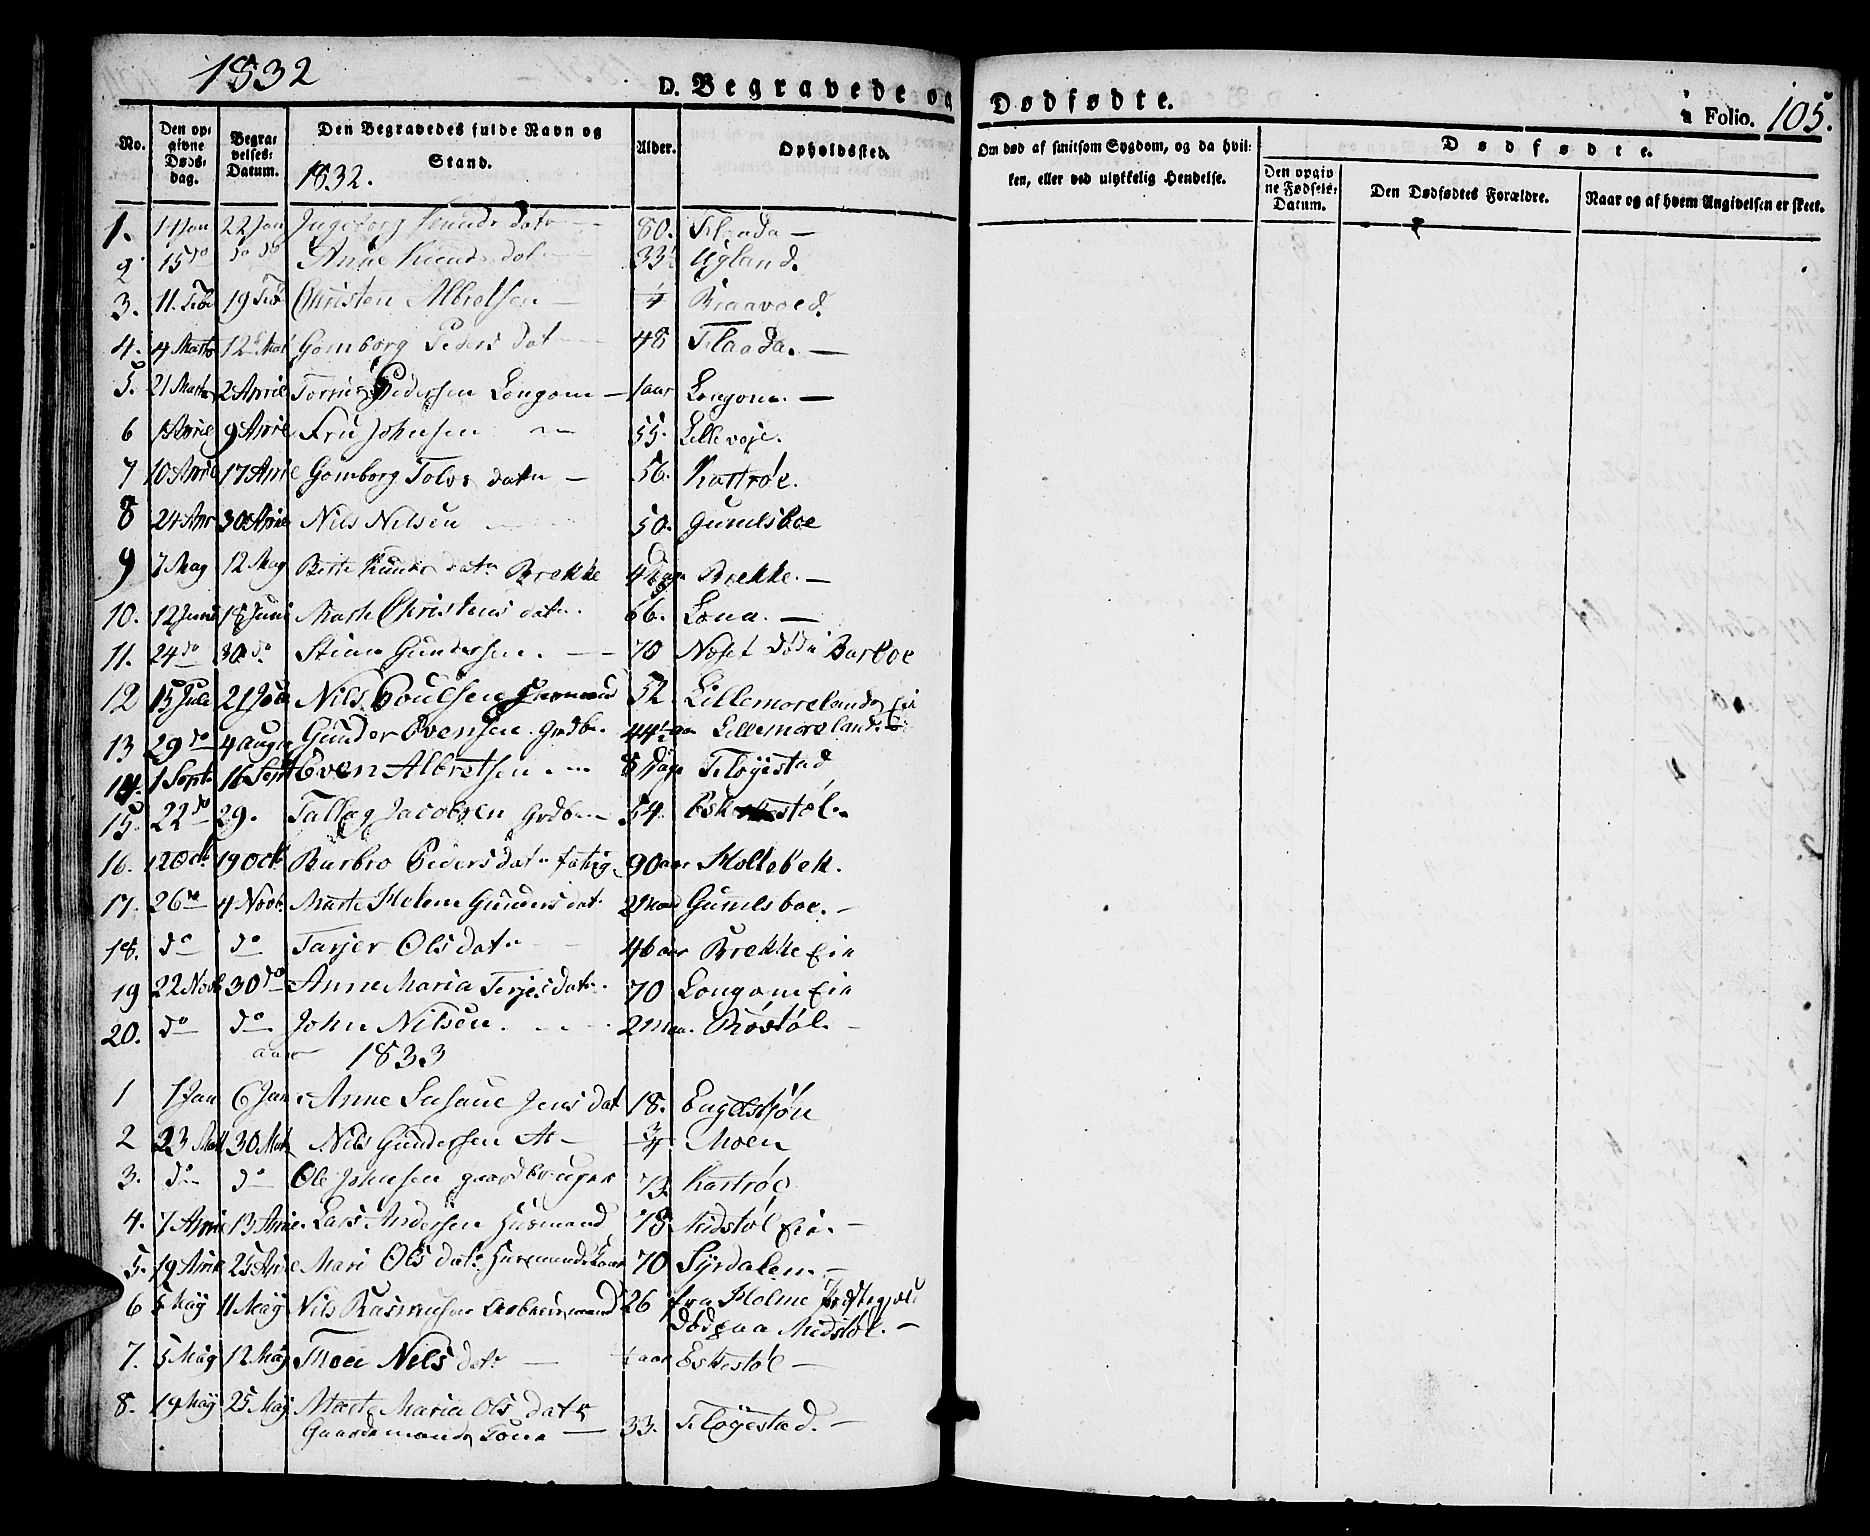 1832
D. Begravede og Dødfødte.
à Folio. 105.
No. Den opgivne Døds-dag. Begravelses-Datum. Den Begravedes fulde Navn og Stand. Alder. Opholdssted. Om død af smitsom Sygdom, og da hvilken, eller ved ulykkelig Hendelse. Dødfødte. Den opgivne Fødsels-Datum. Den Dødfødtes Forældre. Naar og af hvem Angivelsen er skeet.
1832.
1. 14 Jan 22 Jan Ingeborg Knuds datr 80. Flaada
2 15 do do do Anne Knuds datr 33½ Ugland.
3. 11. Feb 19 Feb Christen Albretsen Braavold.
4. 4 Marts 12 Mar Gomborg Peders dat 48 Flaada.
5. 21 Marts 2 Aprie Pedersen Longom 1 aar Longom.
6 9 Aprie Johnsen 55. Lilleveje.
7 10 Aprie 17 Aprie Gomborg Tolvs datr 56. Kastrøe.
8 24 Apr 30 Aprie Nils Nilsen 50. Gumlsboe
9 7 May 12 May Berte Knuds datr Brekke 4 Brekke.
10. 12 Juni 18 Juni Marte Christens datr 66. Lona.
11. 24 do 30 do. Stian Gundersen. 70 Neset død i Barboe
12 15 Juli 21 Juli Nils Poulsen Huusmand 52 Lillemoreland Eie
13 29 do 4 August Gunder Ovensen Grdb. 44½ aar Lillemoreland
14. 1 Sept. 16 Sept Even Albretsen 8 Dage Fløyestad
15. 22 do 29. Tallag Jacobsen Grdb. 54. Eskestøl.
16. 12 Oct. 19 Oct. Barbro Peders datr fattig 90 aar Holtebek.
17. 26 do 4 Novb. Marte Helene Gunders dat 2 Gumlsboe.
18. do do Tarjer Ols datr 46 aar Brekke Eie
19 22 Novb 30 do Anne Maria Terjes datr. 70 Longom Eie
20. do do John Nilsen. 2 Røstøl.
aar 1833
1 1 Jan 6 Jan Anne Susane Jens dat 18. Engelstjøn
2 23 Mart 30 Mart Nils Gundersen ¾ Moen
3. do do Ole Johnsen gaardbruger 73 Kastrøe
4. 7 Aprie 13 Aprie Lars Andersen Huusmand 78 Midstøl Eie.
5. 19 Aprie 25 Aprie Mari Ols datr Huusmands 70 Syrdalen
6 5 May 11 May Nils Rasmusen Arbeidsmand 26 fra Holme
død paa Midstøl.
7. 5 May 12 May Nils datr ½ aar Eskestøl
8. 19 May 25 May Marte Maria Ols datr
Gaardmands Kone 33. Fløyestad.